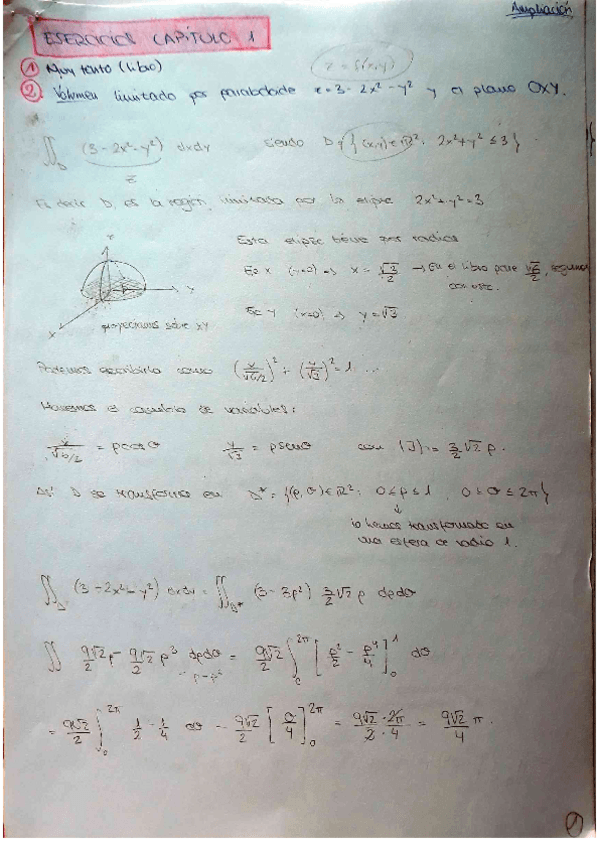 Ampliación
EJERCICIOS CAPÍTULO 1
① Muy tonto (libro)
z = f(x,y)
② Volumen limitado por paraboloide z = 3 - 2x² - y² y el plano OXY.
∬_D (3 - 2x² - y²) dxdy siendo D = {(x,y) ∈ ℝ²: 2x² + y² ≤ 3}
z
Es decir D es la región limitada por la elipse 2x² + y² = 3
Esta elipse tiene por radios
Eje x (y=0) ⇒ x = √3/2 → En el libro pone √6/2, seguimos
con este.
Eje y (x=0) ⇒ y = √3
z
y
x
proyectamos sobre XY
Podemos escribirla como (x/(√6/2))² + (y/√3)² = 1 ...
Hacemos el cambio de variables:
x/(√6/2) = ρcosθ y/√3 = ρsenθ con |J| = 3/2 √2 ρ.
Así D se transforma en D* = {(ρ,θ) ∈ ℝ²: 0 ≤ ρ ≤ 1, 0 ≤ θ ≤ 2π}
↓
lo hemos transformado en
una esfera de radio 1.
∬_D (3 - 2x² - y²) dxdy = ∬_D* (3 - 3ρ²) 3/2 √2 ρ dρdθ
∬ 9√2/2 ρ - 9√2/2 ρ³ dρdθ = 9√2/2 ∫₀^2π [ρ²/2 - ρ⁴/4]₀¹ dθ
ρ - ρ³
= 9√2/2 ∫₀^2π 1/2 - 1/4 dθ = 9√2/2 [θ/4]₀^2π = 9√2/2 · 2π/4 = 9√2/4 π.
1